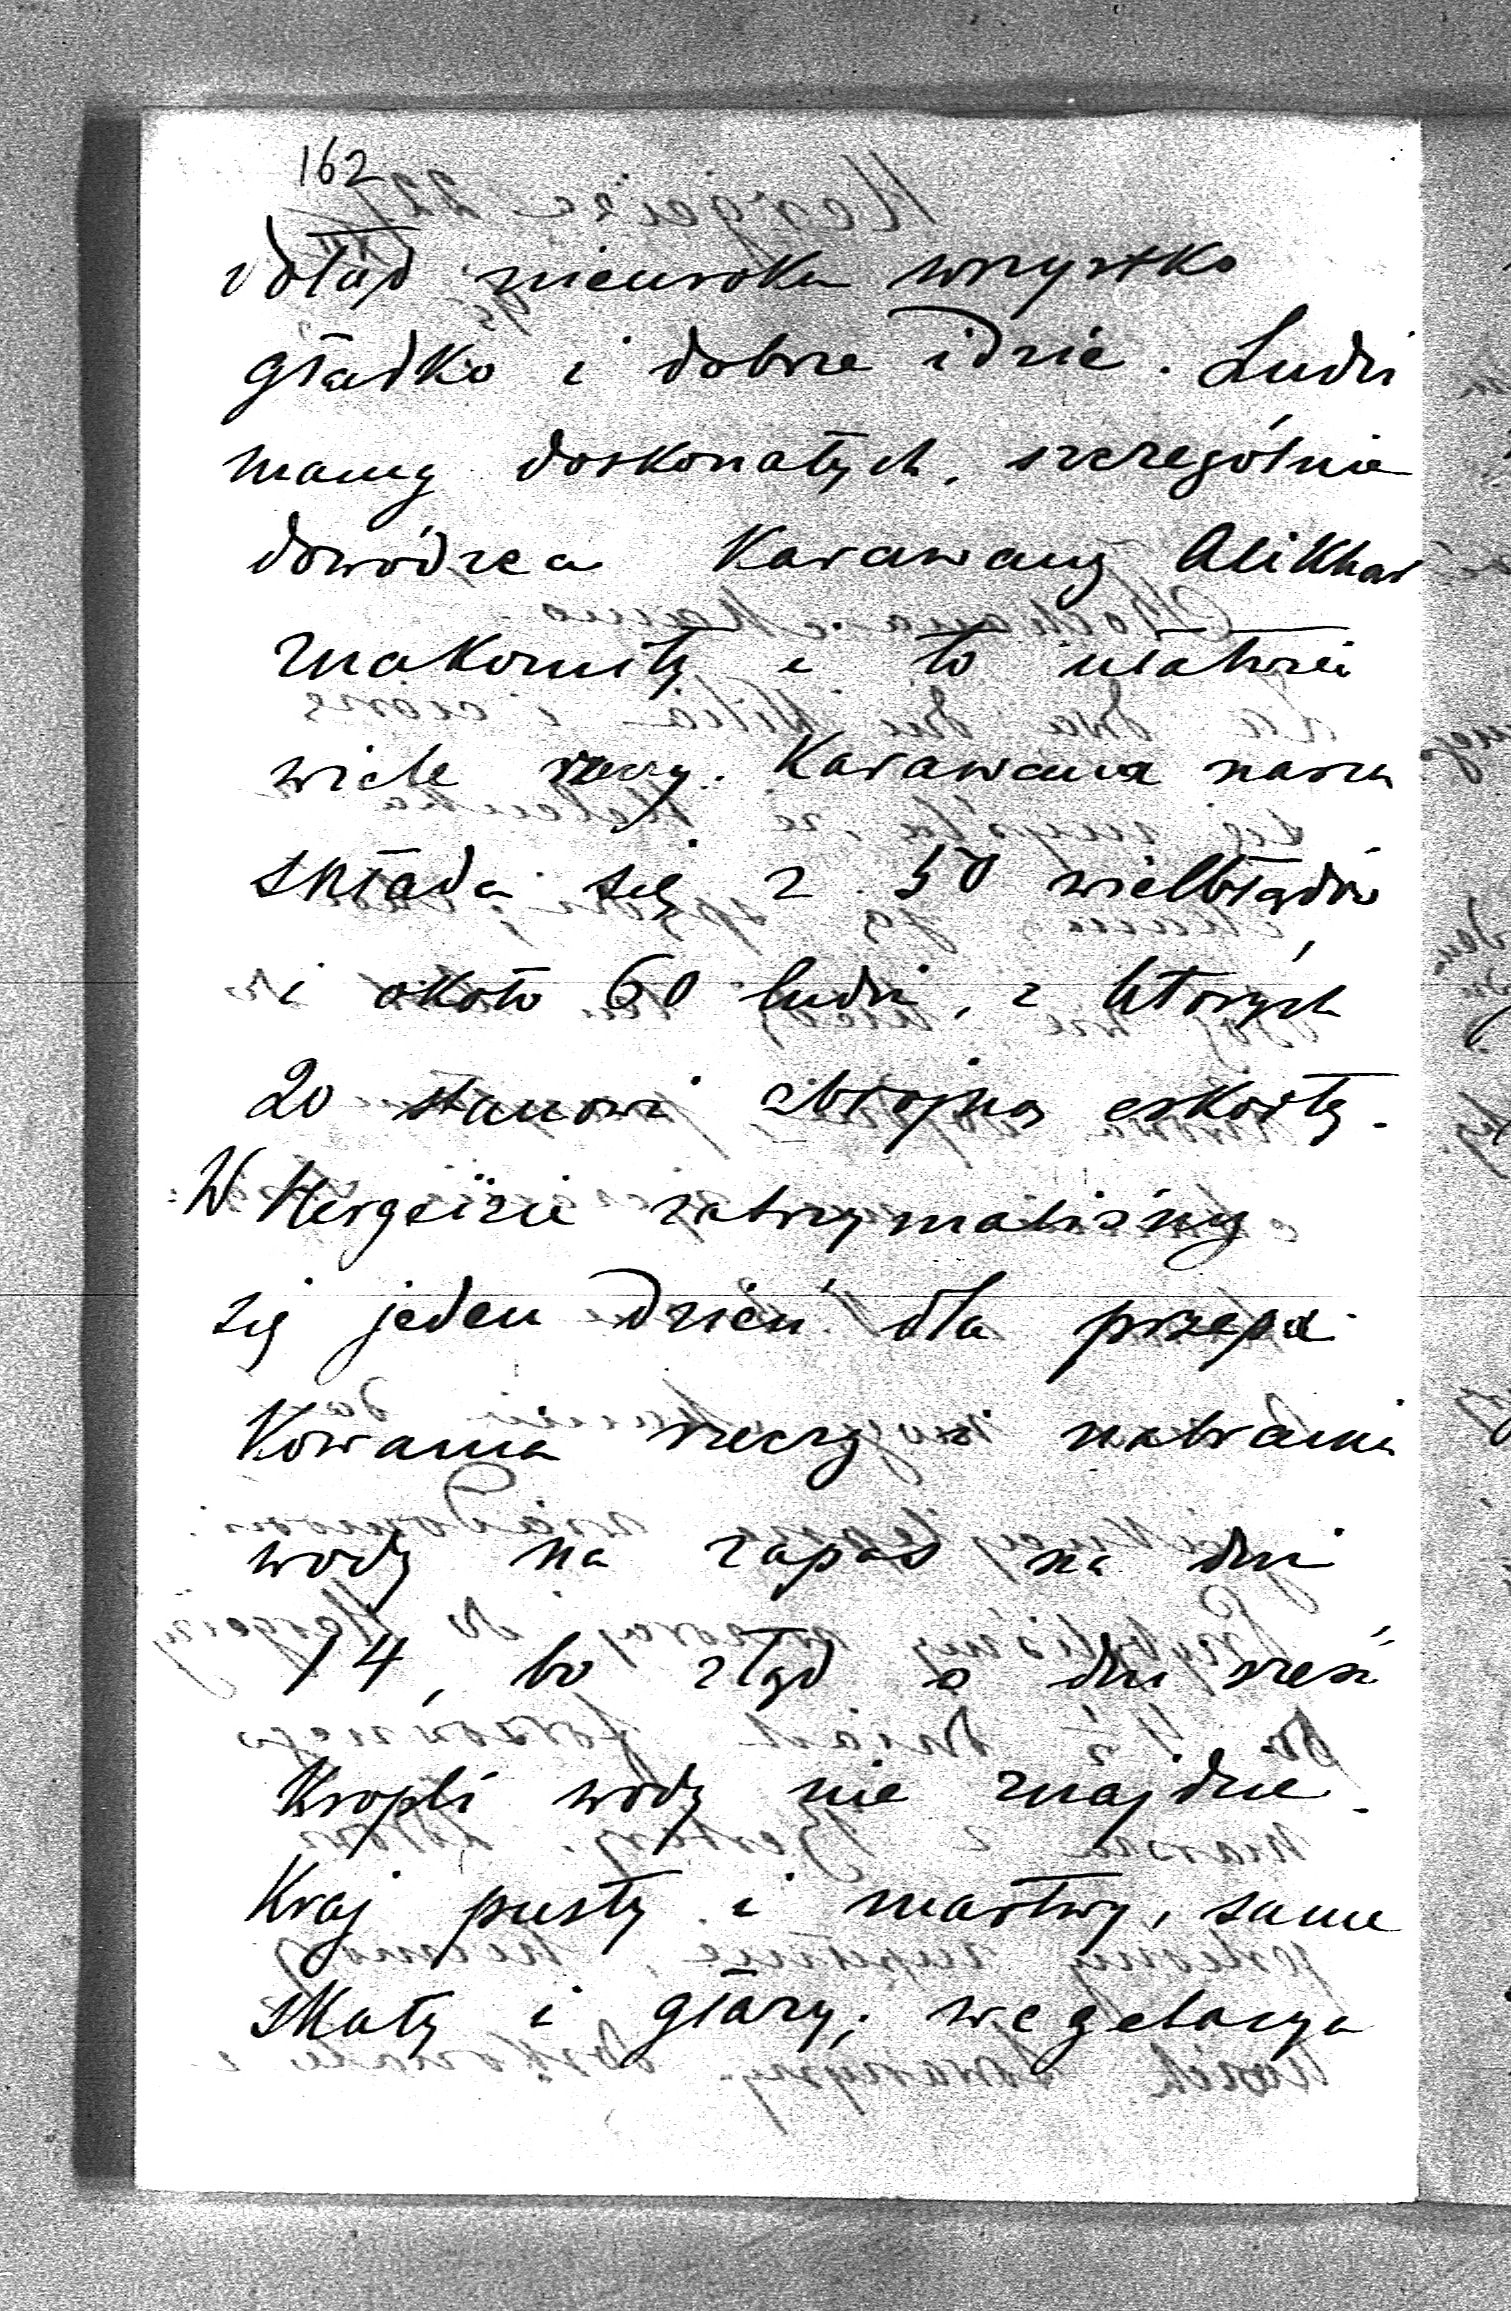 162
dotąd nieuroku wszystko
gładko i dobrze idzie. Ludzi
mamy doskonałych, szczególnie
dowódzca Karawany Ali Khar
znakomity i to ułatwia
wiele rzeczy. Karawana nasza
składa się z 50 wielbłądów
i około 60 ludzi, z których
20 stanowi zbrojną eskortę.
W Hergeizie zatrzymaliśmy
się jeden dzień dla przepa
kowania rzeczy i nabrania
wody na zapas na dni
14, bo ztąd o dni sześć
kropli wody nie znajdzie.
Kraj pusty i martwy, same
skały i głazy; wegetacya